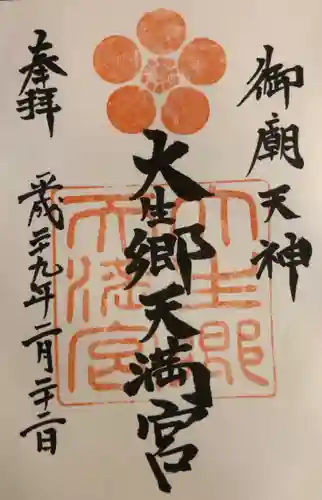 御廟天神
大生郷天満宮
奉拝
平成二十九年二月二十二日
大生郷
天満宮